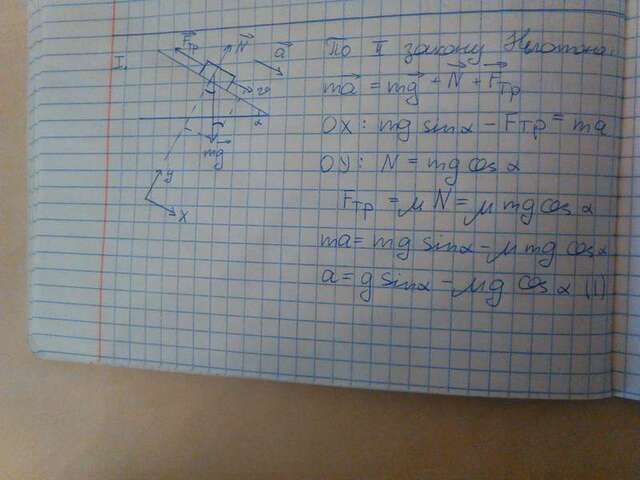 I.
Fтр
N
a
v
α
mg
y
x
По II закону Ньютона:
ma = mg + N + Fтр
OX: mg sinα − Fтр = ma
OY: N = mg cos α
Fтр = μ N = μ mg cos α
ma = mg sinα − μ mg cos α
a = g sinα − μg cos α (1)